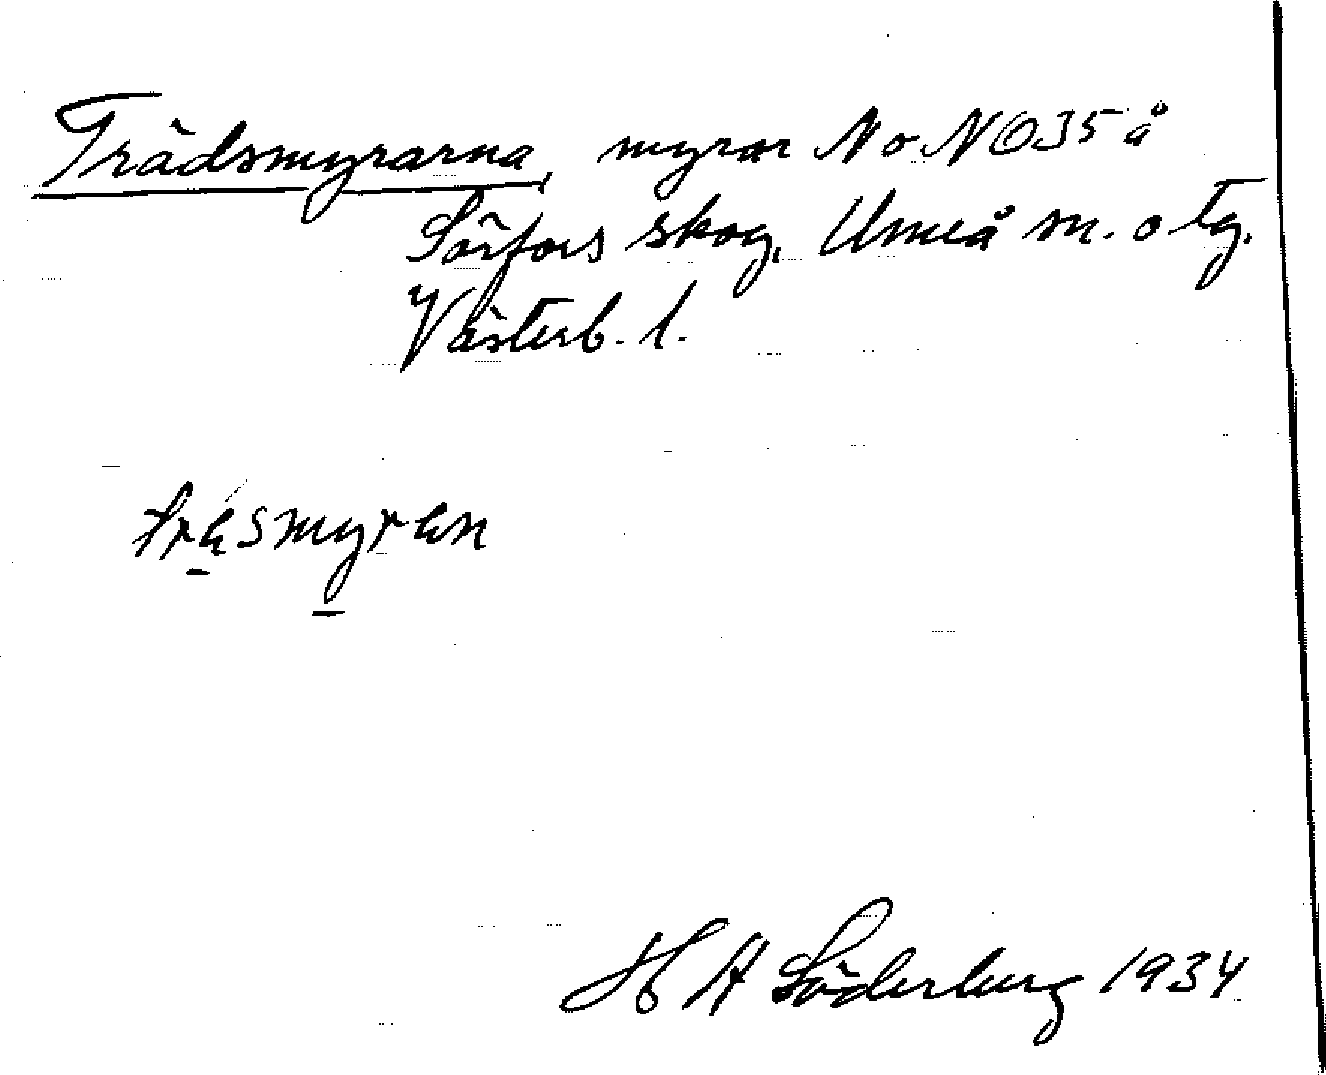 Trädsmyrarna, myrar N o NO 35 å
Sörfors skog, Umeå sn. o tg.
Västerb. l.
träsmyren
H A Söderberg 1934